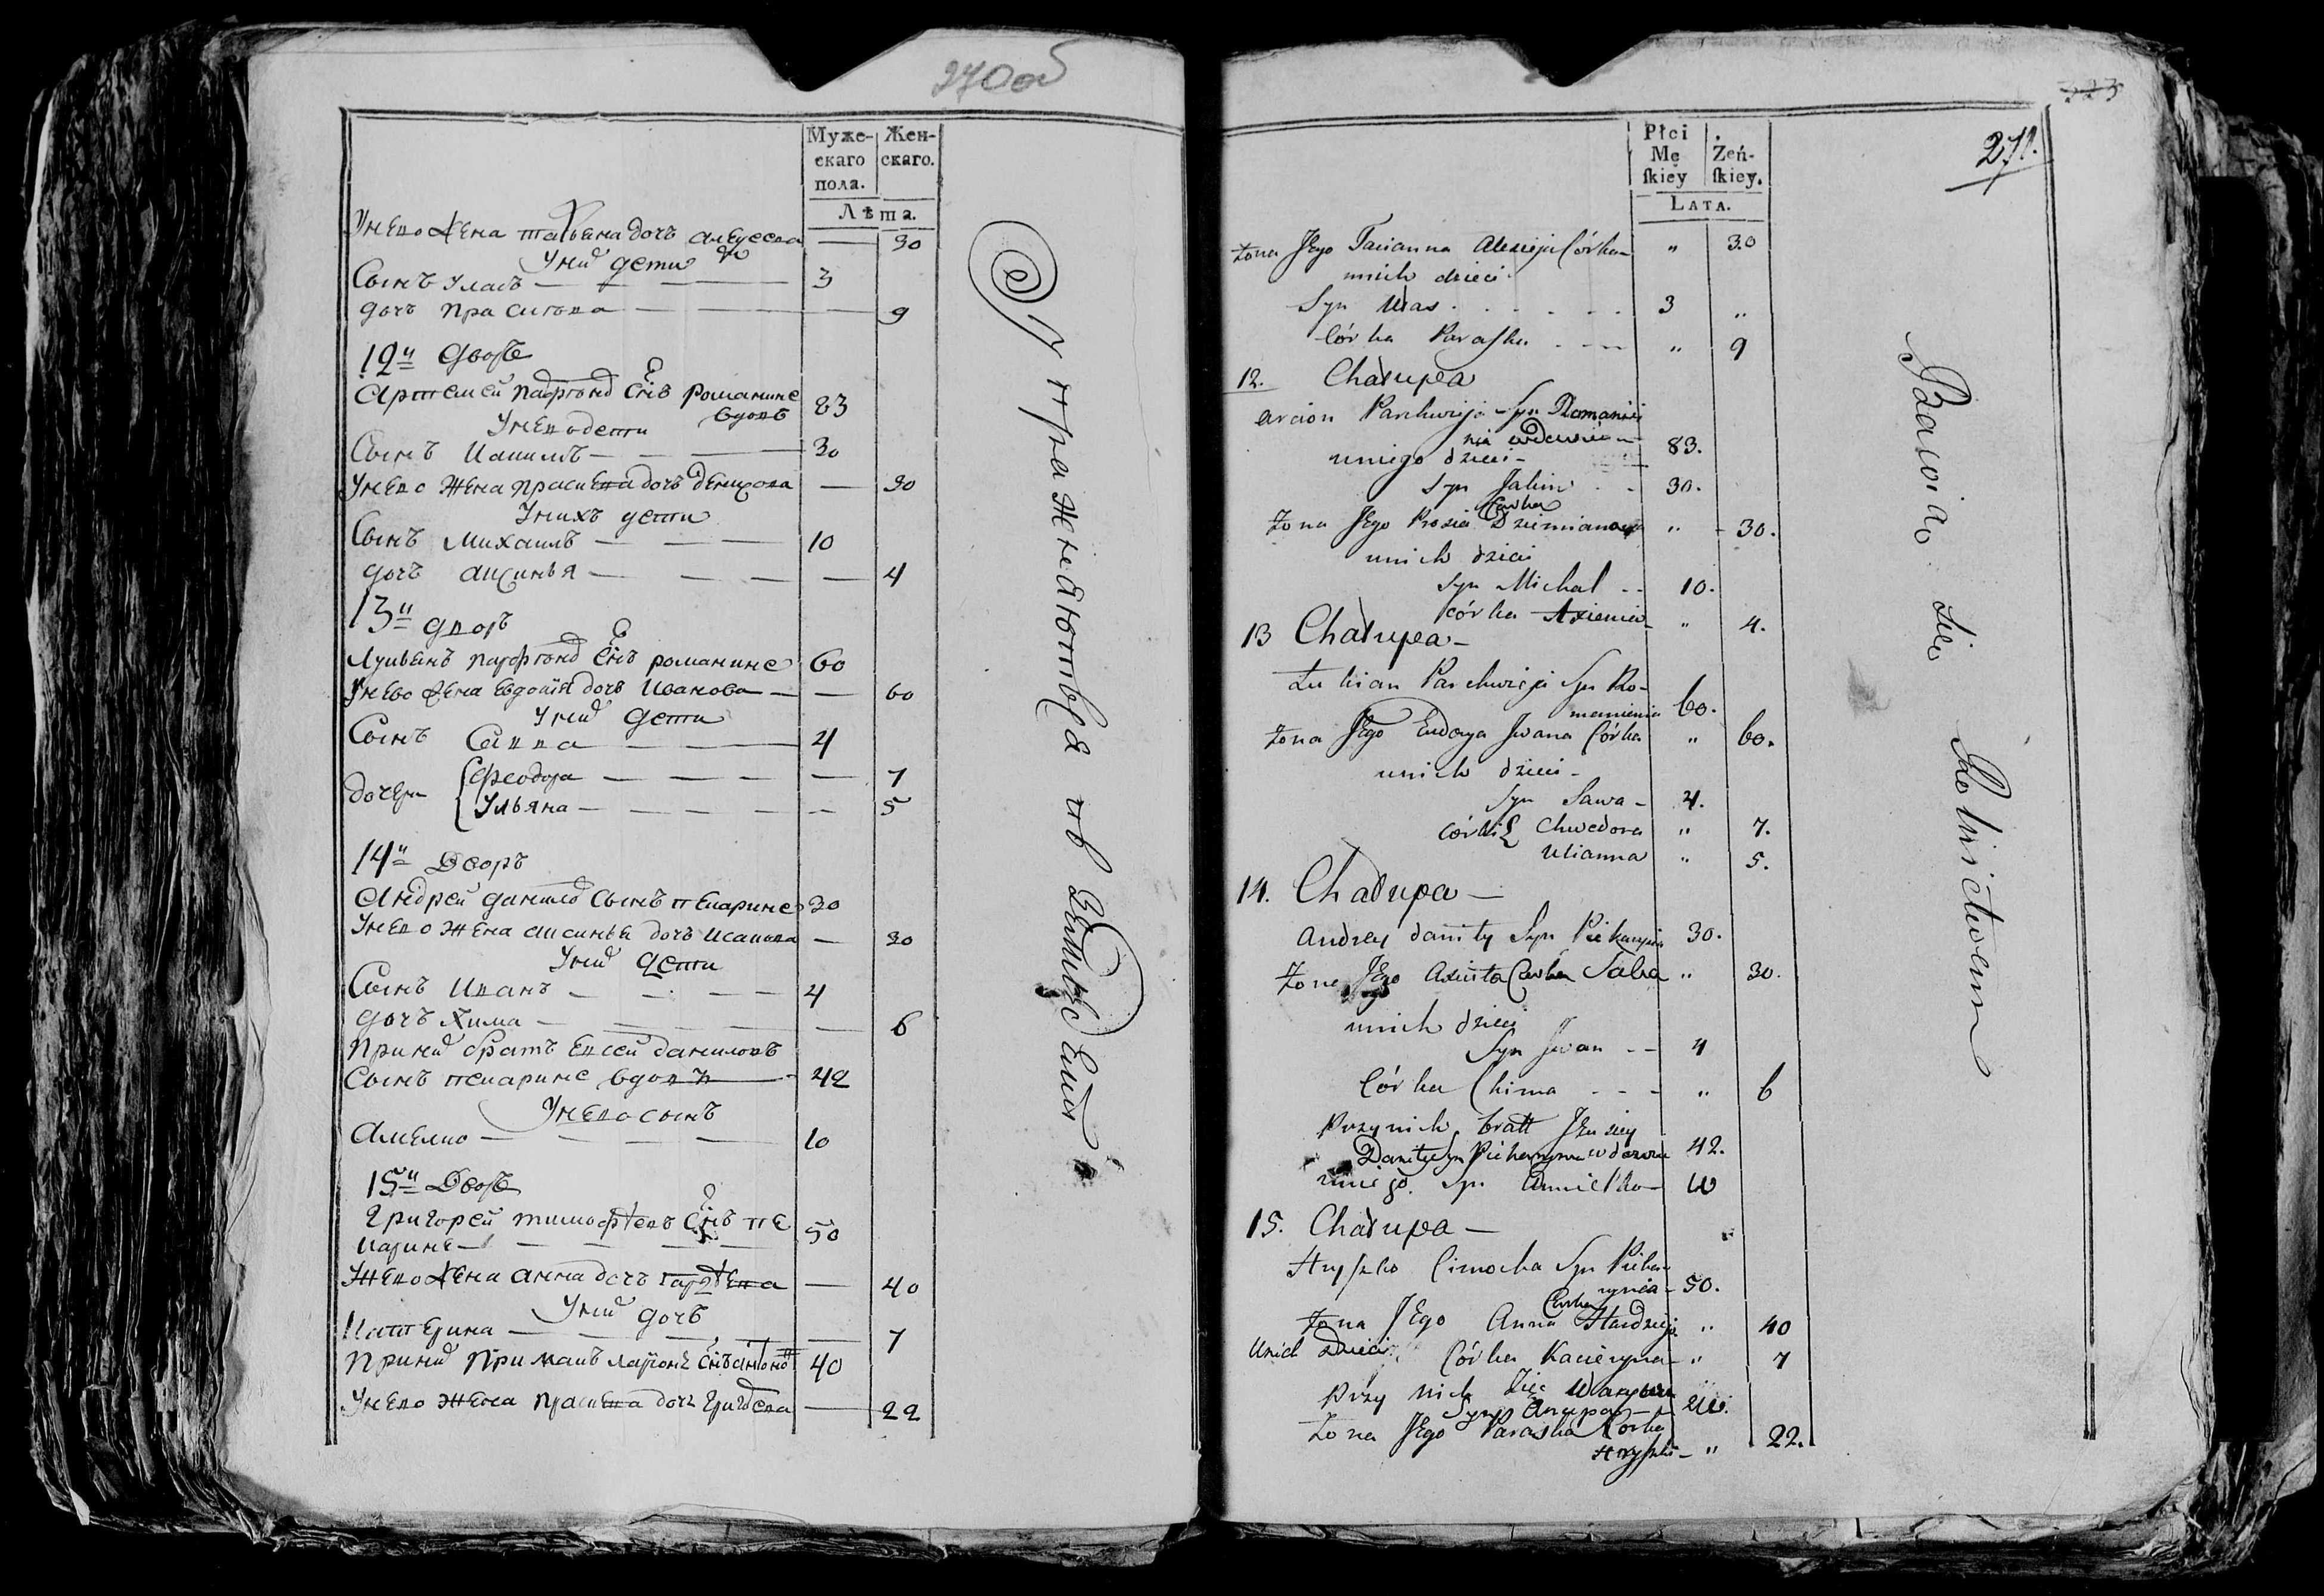 270 об
Муже-
скаго
пола.
Жен-
скаго.
Лѣта.
Унево жена татьяна дочь алексеева — 30
Унид дети
Сынъ Уласъ — 3
дочъ Прасковя — 9
12й дворъ
Артемей Парфонд Снъ романине
вдовъ 83
Унево дети
Сынъ Иакимъ — 30
Унево жена прасцева дочъ демидова — 30
Унихъ дети
Сынъ Михаилъ — 10
дочъ аксинья — 4
13й дворъ
Лукьянъ парфонд Снъ романине 60
Унево жена Евдокия дочъ Иванова — 60
Унид дети
Сынъ Савва — 4
дочери Феодора — 7
Ульяна — 5
14й Дворъ
Андрей данило Сынъ пекарине 30
Унево жена аксинья дочъ Исакова — 30
Унид дети
Сынъ Иванъ — 4
дочъ Хима — 6
Принид братъ Евсей даниловъ
Сынъ пекарине вдовъ — 42
Унево сынъ
Амелко — 10
15й Дворъ
Григорей тимофеевъ Снъ пе
карине — 50
Унево жена анна дочъ гардеева — 40
Унид дочъ
Катерина — 7
Принид Примакъ ларионъ Снъ антоно 40
Унево жена прасцева дочъ григорева — 22
Упражняются въ Земледелии
323
271.
Płci
Mę
ſkiey
Żeń-
ſkiey.
LATA.
żona Jego Tacianna Alexieja Córka " 30
unich dzieci
Syn Ułas . . . . . . 3 "
Córka Paraſka . . . " 9
12. Chałupa
arcion Parchwieja Syn Romanini
nia wdowiec 83.
uniego dzieci —
Syn Jakim . . 30.
Żona Jego Prosia Corka Dziemianowa " 30.
unich dzieci
Syn Michał . . 10.
córka Axienia " 4.
13 Chałupa —
Łukian Parchwieja Syn Ro-
manienia 60.
żona Jego Eudoxya Jwana Córka " 60.
unich dzieci —
Syn Sawa — 4.
córki Chwedora " 7.
Ulianna " 5.
14. Chałupa —
Andrzey Daniły Syn Piekarynia 30.
Żona Jego Axiuta Corka Saka " 30.
unich dzieci
Syn Jwan . . 4
Córka Chima . . . " 6
Przynich bratt Jeusiey
Daniły Syn Piekarynia wdowiec 42.
uniego Syn Amielko — 10
15. Chałupa —
Hryſzko Cimocha Syn Pieka-
rynia — 50.
Żona Jego Anna Corka Hardzieja " 40
Unich Dzieci. Córka Kacieryna — " 7
Przy nich Zięć
Żona Jego Paraska Córka
Hryſzki — " 22.
Bawią się Rolnictwem